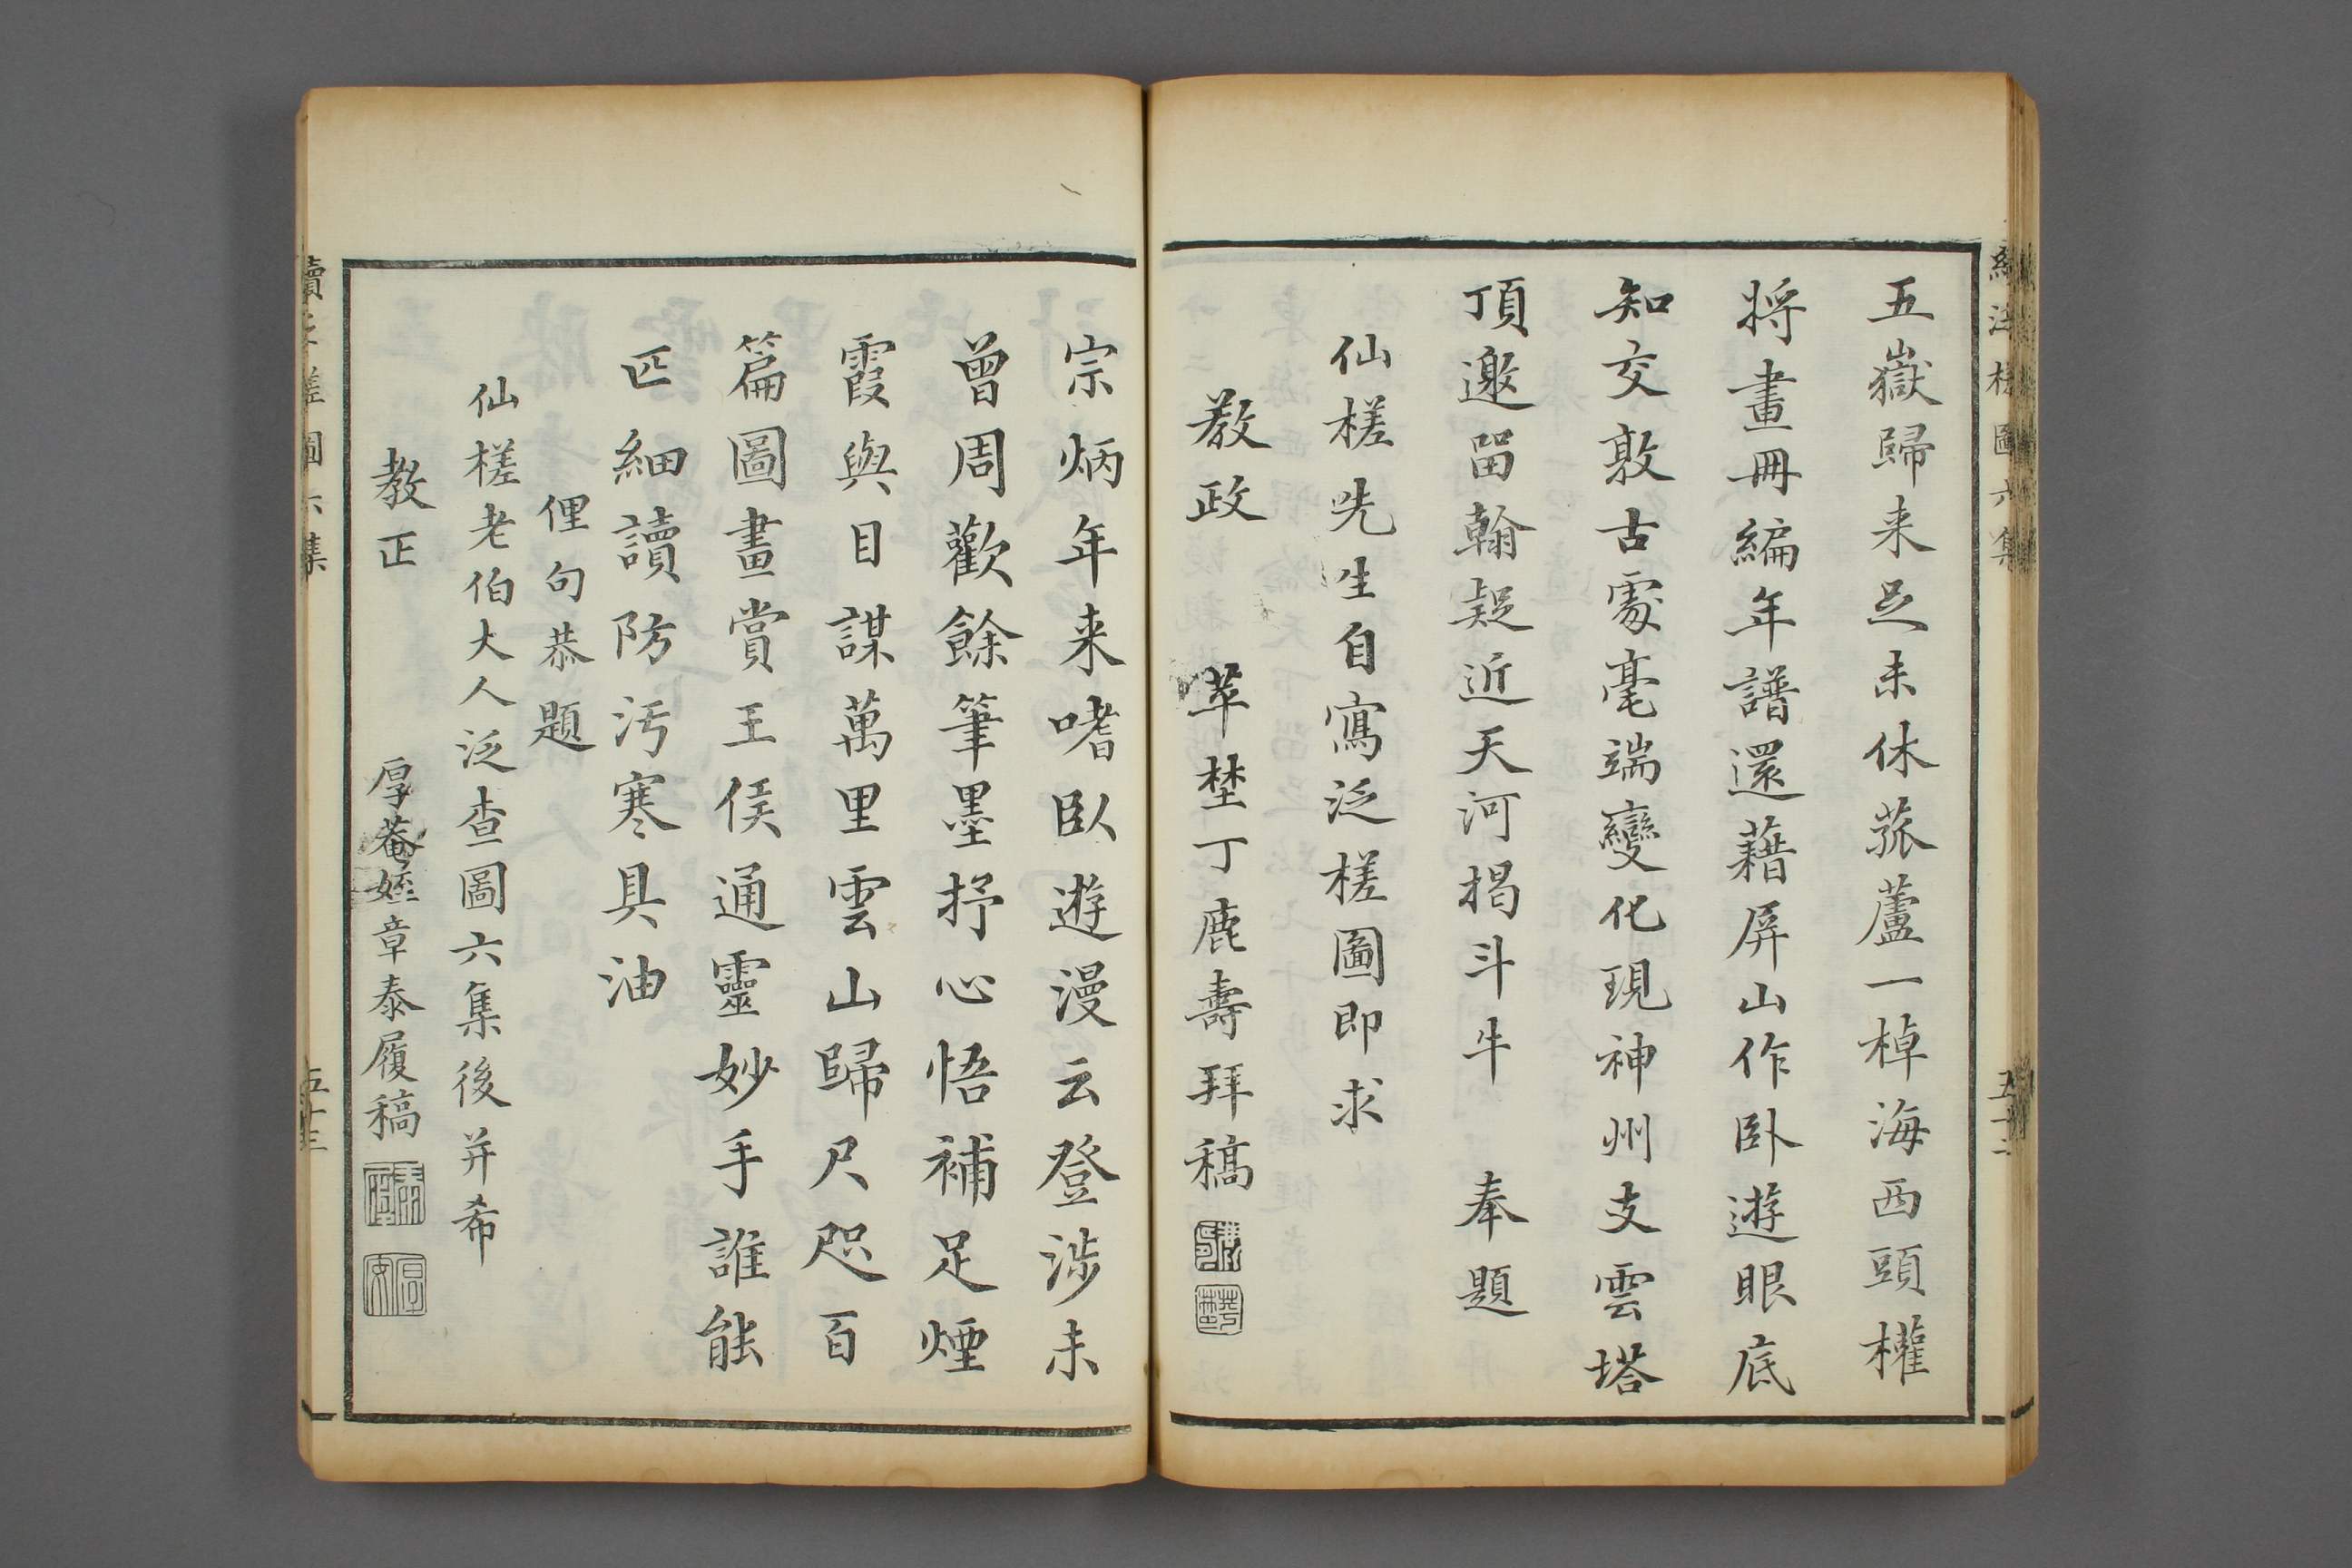 五嶽歸来足未休菰蘆一棹海西頭權
將畫冊編年譜還藉屏山作卧遊眼底
知交敦古處毫端變化現神州支雲塔
頂邀留翰疑近天河揭斗牛 奉題
仙槎先生自寫泛槎圖即求
教政 苹埜丁鹿壽拜稿
宗炳年来嗜臥遊漫云登涉未
曾周歡餘筆墨抒心悟補足煙
霞與目謀萬里雲山歸尺咫百
篇圖畫賞王侯通靈妙手誰能
匹細讀防污寒具油
俚句恭題
仙槎老伯大人泛查圖六集後并希
教正 厚菴姪章泰履稿
續泛槎圖六集
五十三